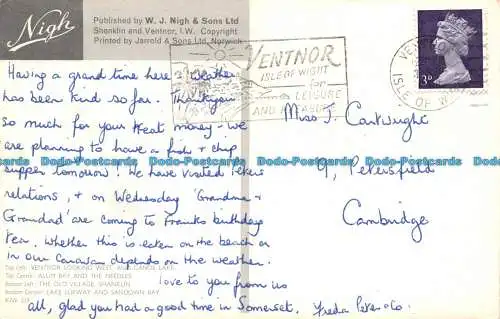 Nigh
Published by W. J. Nigh & Sons Ltd
Shanklin and Ventnor, I.W. Copyright
Printed by Jarrold & Sons Ltd, Norwich
VENTNOR
ISLE OF WIGHT
for
LEISURE
AND PLEASURE
VENTNOR
ISLE OF WIGHT
3D
Having a grand time here & weather
has been kind so far. Thankyou
so much for your treat money - we
are planning to have a fish & chip
supper tomorrow! We have visited Peter's
relations, & on Wednesday 'Grandma &
Grandad' are coming to Frank's birthday
tea. Whether this is eaten on the beach or
in our caravan depends on the weather.
love to you from us
all, glad you had a good time in Somerset. Freda Peter & Co.
Miss J. Cartwright
9, Petersfield
Cambridge
Top Left: VENTNOR LOOKING WEST, AND CANOE LAKE
Top Centre: ALUM BAY AND THE NEEDLES
Bottom Left: THE OLD VILLAGE, SHANKLIN
AND SANDOWN BAY
Dodo-Postcards Dodo-Postcards Dodo-Postcards Dodo-Postcards Dodo-Postcards Dodo-Postcards